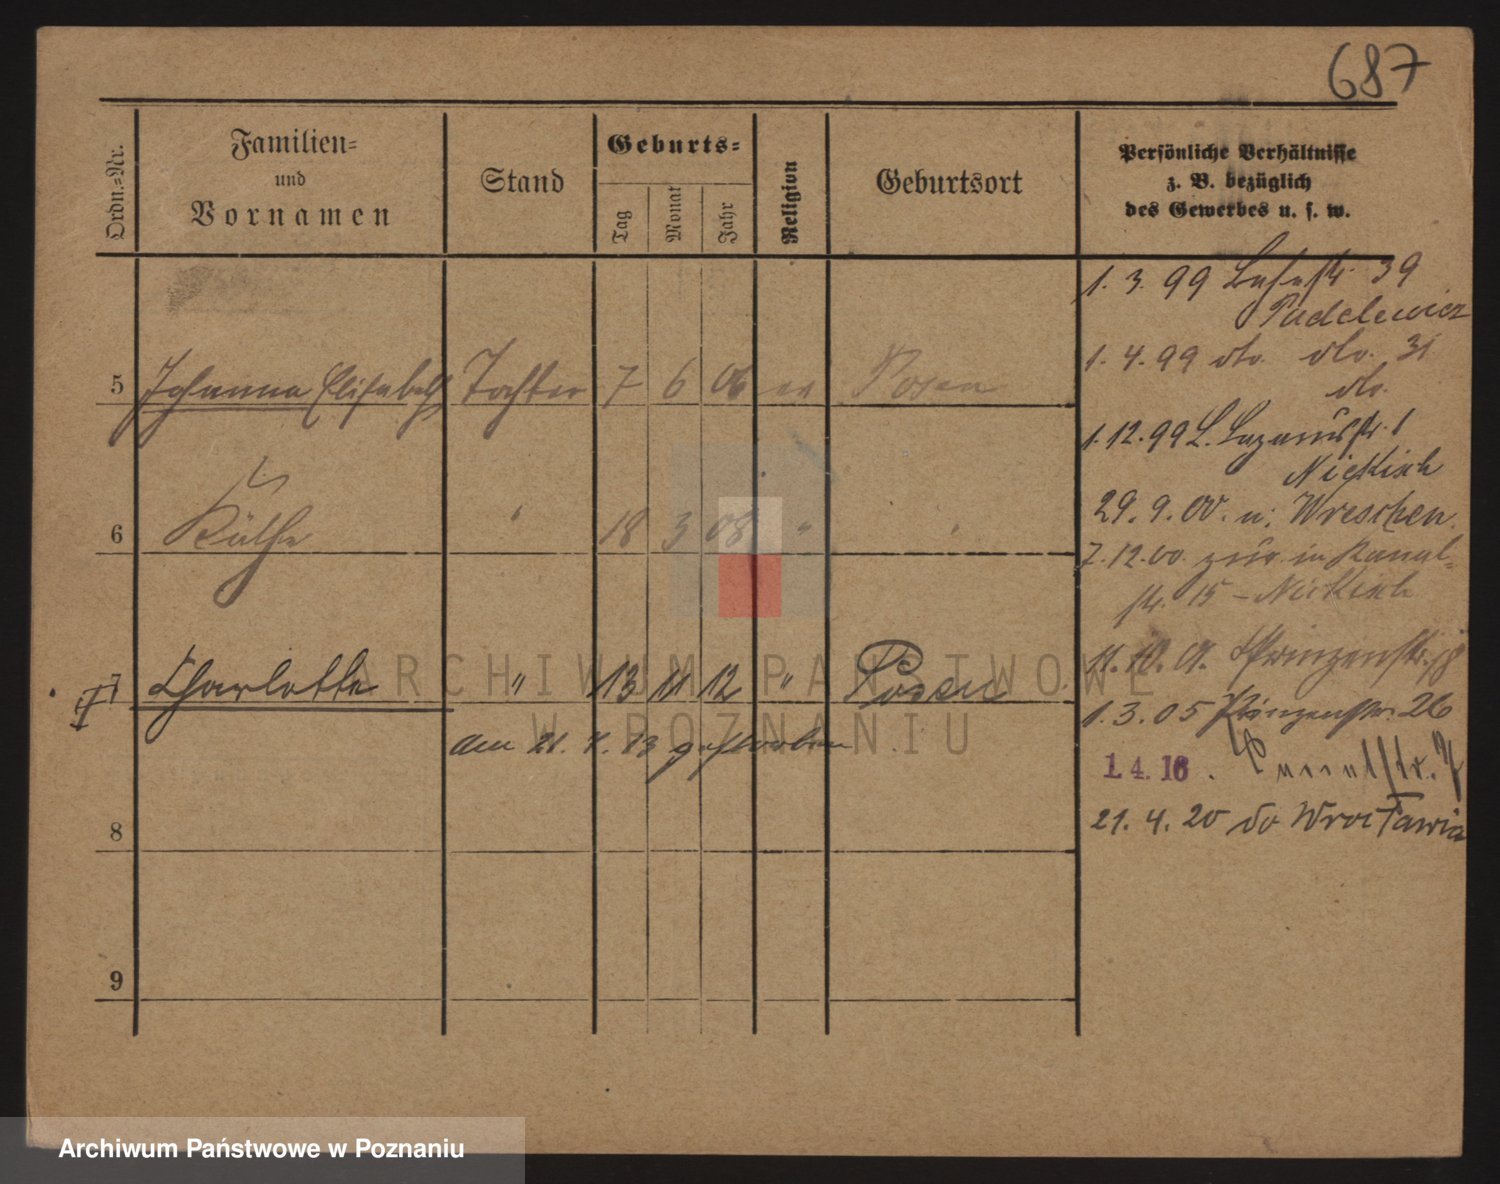 687
Ordn.-Nr.
Familien-
und
Vornamen
Stand
Geburts-
Tag
Monat
Jahr
Religion
Geburtsort
Persönliche Verhältnisse
z. B. bezüglich
des Gewerbes u. s. w.
1. 3. 99 39
Padelewicz
1. 4. 99 dto. dto. 31
dto.
5 Johanna Elisabeth Tochter 7 6 06 ev Posen
1. 12. 99 L. Lazarusstr. 1
Nickisch
29. 9. 00. n. Wreschen.
6 Käthe " 18 3 08 " "
7. 12. 00. zur. in Kanal-
str. 15 – Nickisch
11. 10. 01. Prinzenstr. 18
7 Charlotte " 13 11 12 " Posen
1. 3. 05 Prinzenstr. 26
am 21. 4. 13 gestorben
1. 4. 16.
21. 4. 20 do Wrocławia
8
9
ARCHIWUM PAŃSTWOWE
W POZNANIU
Archiwum Państwowe w Poznaniu